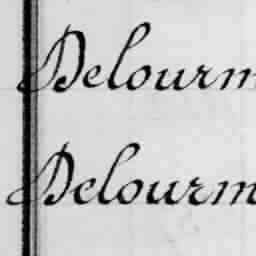 Delourm
Delourm